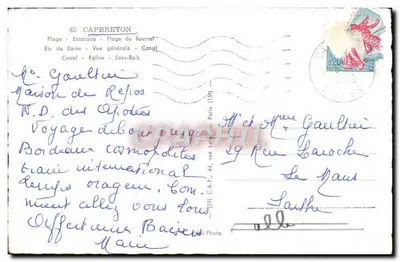 85 CAPBRETON
Plage - Estacade - Plage du Bourret
Ets de Bains - Vue générale - Canal
Canal - Eglise - Sous-Bois
Me Gaultier
Maison de Repos
N.D. des Apôtres
Voyage debout jusqu
Bordeaux cosmopolites
train international
temps orageux. Com
ment allez vous tous
Affectueux Baisers
Marie
Mr et Mme Gaultier
19 Rue Laroche
Le Mans
Sarthe